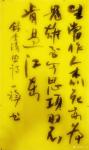 生當作人杰死亦為
鬼雄至今思項羽不
肯過江东
李清照詩
书